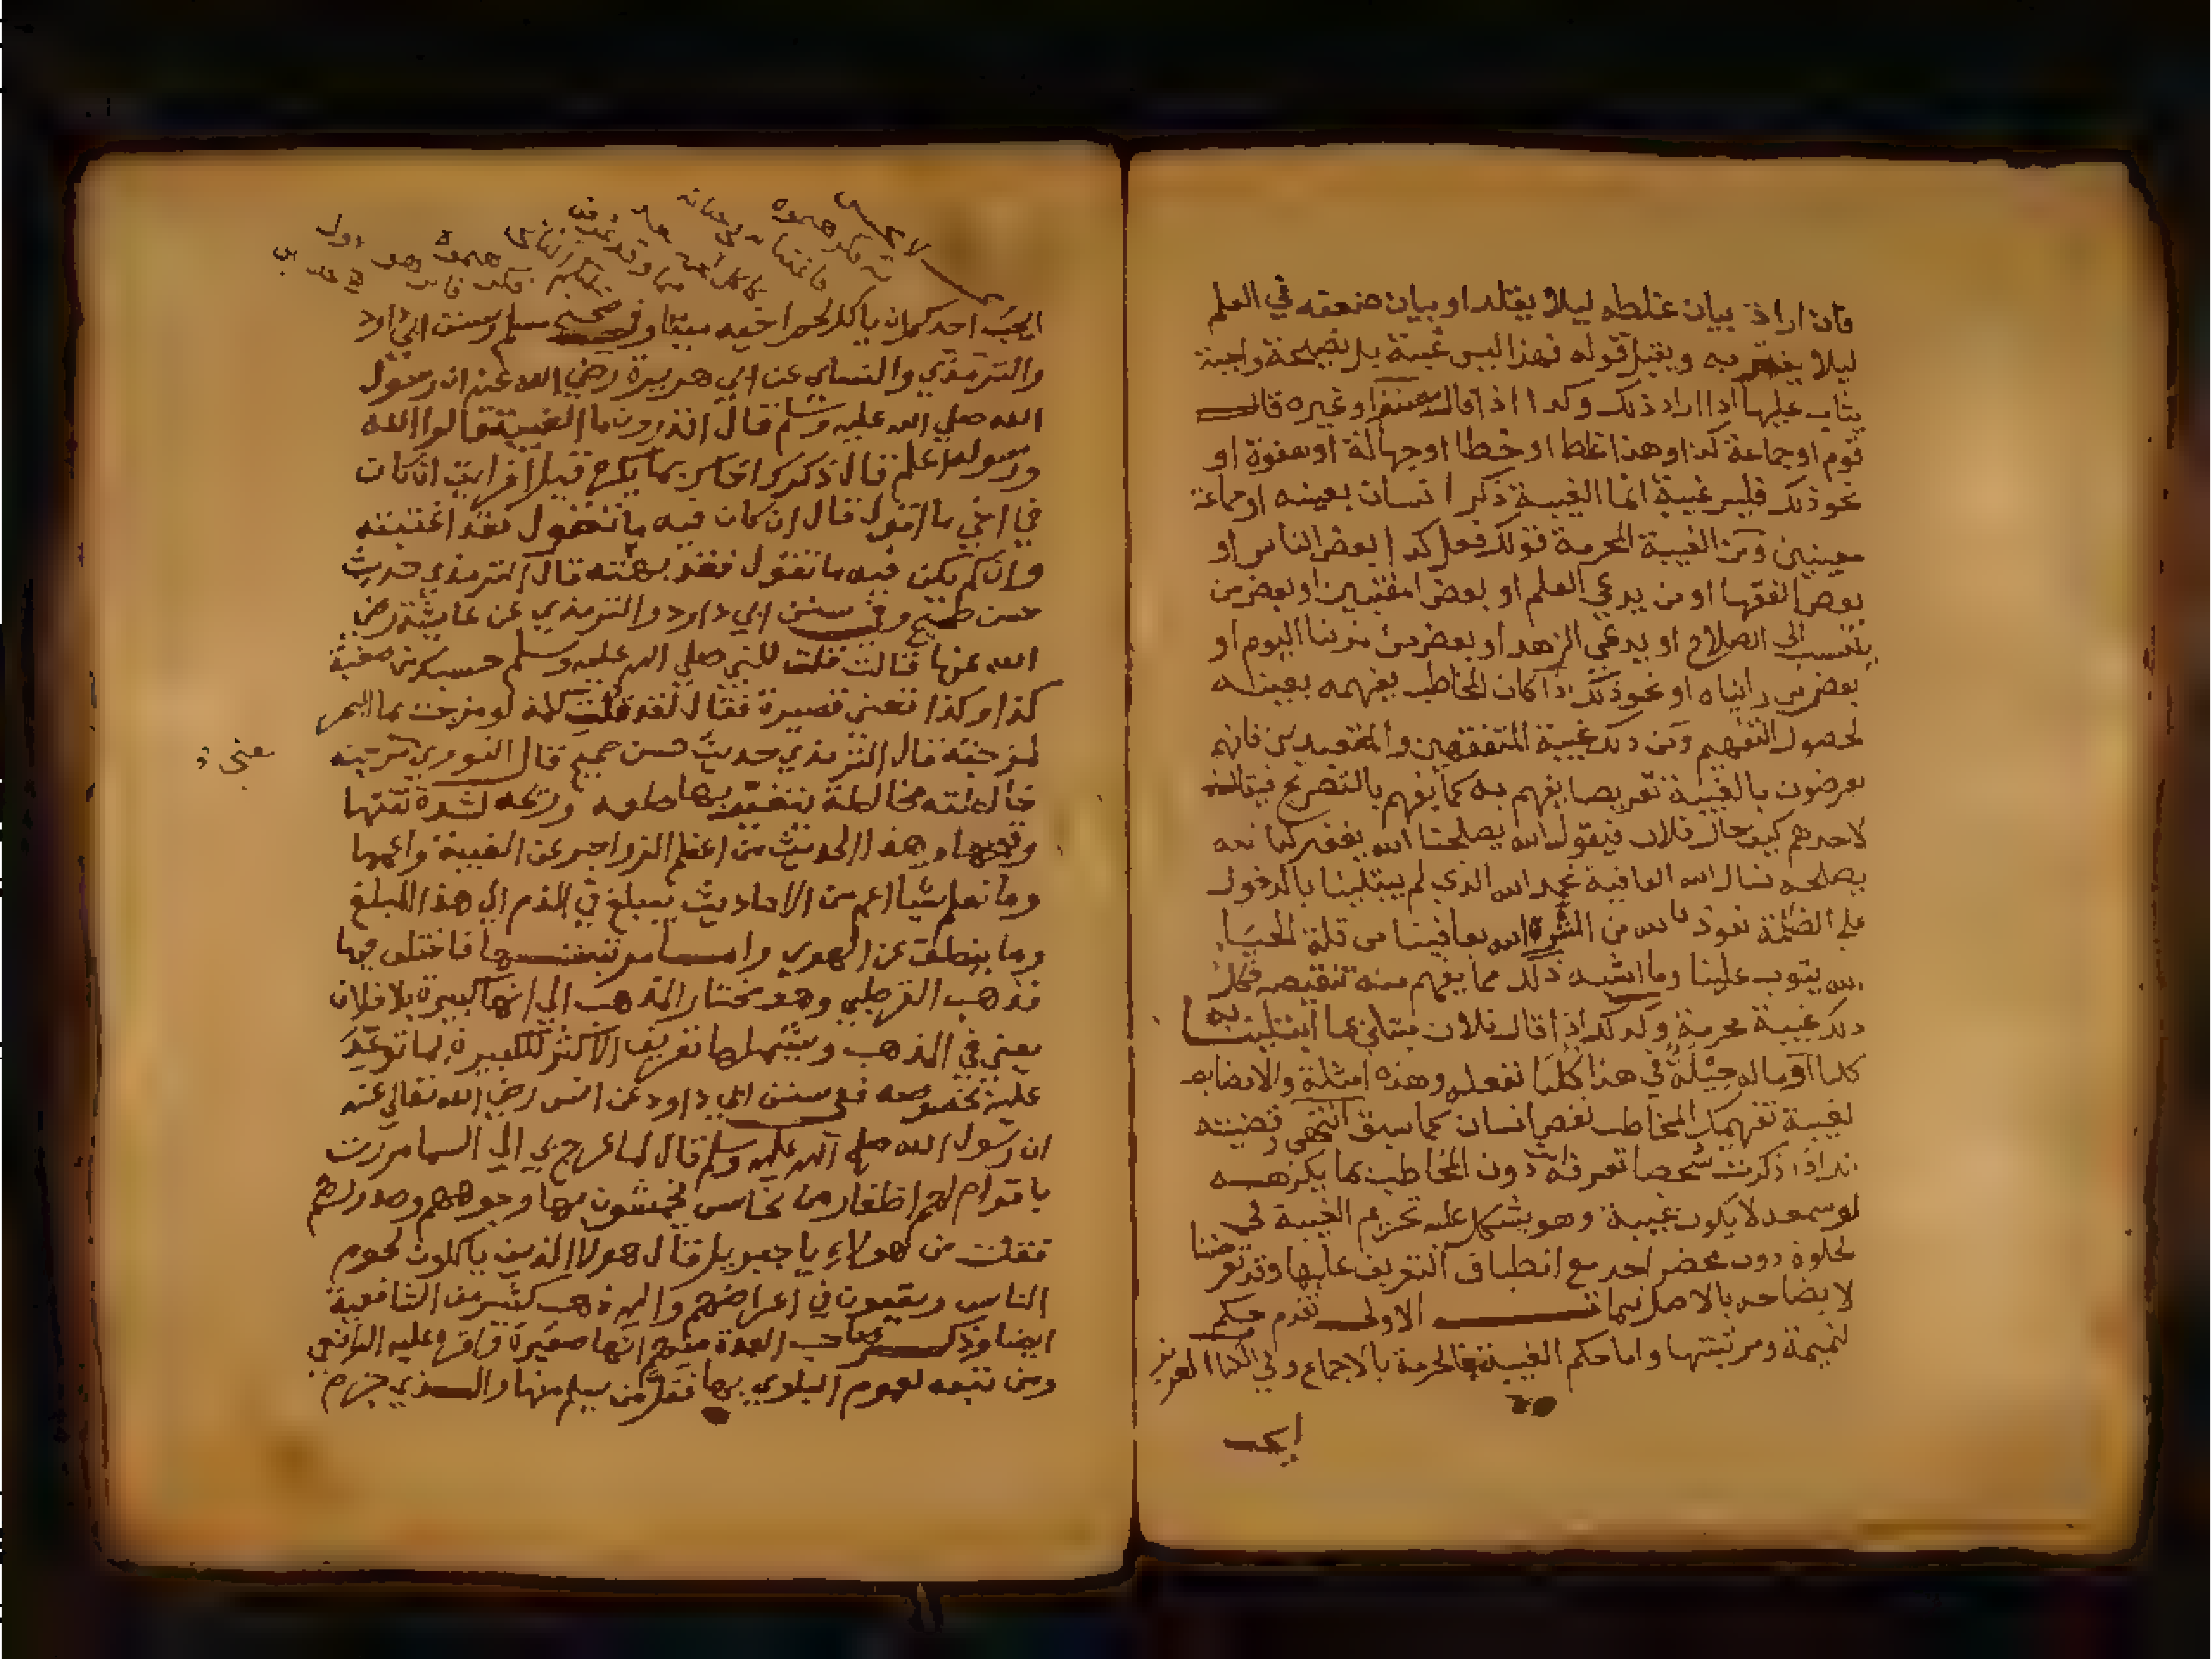 فان اراد بيان غلطه ليلا يقلد او بيان ضعفه في العلم
ليلا يغتر به ويقبل قوله فهذا ليس غيبة بل نصيحة واجبة
يثاب عليها اذا اراد ذلك وكذا اذا قال مصنف او غيره قال
قوم او جماعة كذا وهذا غلط او خطا او جهالة او هفوة او
نحو ذلك فليس غيبة انما الغيبة ذكر انسان بعينه او جماعة
معينين ومن الغيبة المحرمة قولك فعل كذا بعض الناس او
بعض الفقها او من يدعي العلم او بعض المفتيين او بعض من
ينتسب الى الصلاح او يدعي الزهد او بعض من مر بنا اليوم او
بعض من رايناه او نحو ذلك اذا كان المخاطب يفهمه بعينه
لحصول التفهيم ومن ذلك غيبة المتفقهين والمتعبدين فانهم
يعرضون بالغيبة تعريضا يفهم به كما يفهم بالتصريح فيقال
لاحدهم كيف حال فلان فيقول الله يصلحنا الله يغفر لنا الله
يصلحه نسال الله العافية نحمد الله الذي لم يبتلينا بالدخول
على الظلمة نعوذ بالله من الشر الله يعافينا من قلة الحيا
الله يتوب علينا وما اشبه ذلك مما يفهم منه تنقيصه فكل
ذلك غيبة محرمة وكذلك اذا قال فلان مبتلى بما ابتلينا به
كلنا او ماله حيلة في هذا كلنا نفعله وهذه امثلة والا فضابط
لغيبة تفهيمك المخاطب نقص انسان كما سبق انتهى وقضيته
انه اذا ذكرت شخصا تعرفه دون المخاطب بما يكرهه
لو سمعه لا يكون غيبة وهو يشكل عليه تحريم الغيبة في
لخلوة دون محضر احد مع انطباق التعريف عليها وقد تعرضنا
لايضاحه بالاصل فيما الاولى تقدم حكم
لنميمة ومرتبتها واما حكم الغيبة فالحرمة بالاجماع وفي الكتاب العزيز
ايحب
ايحب احدكم ان ياكل لحم اخيه ميتا وفي صحيح مسلم وسنن ابي داود
والترمذي والنساي عن ابي هريرة رضي الله عنه ان رسول
الله صلى الله عليه وسلم قال اتدرون ما الغيبة قالوا الله
ورسوله اعلم قال ذكرك اخاك بما يكره قيل افرايت ان كان
في اخي ما اقول قال ان كان فيه ما تقول فقد اغتبته
وان لم يكن فيه ما تقول فقد بهته قال الترمذي حديث
حسن صحيح وفي سنن ابي داود والترمذي عن عايشة رضي
الله عنها قالت قلت للنبي صلى الله عليه وسلم حسبك من صفية
كذا وكذا تعني قصيرة فقال لقد قلت كلمة لو مزجت بما البحر
لمزجته قال الترمذي حديث حسن صحيح قال النووي مزجته
خالطته مخالطة يتغير بها طعمه وريحه لشدة نتنها
وقبحها وهذا الحديث من اعظم الزواجر عن الغيبة واعمها
وما نعلم شيا اعم من الاحاديث يبلغ في الذم الى هذا المبلغ
وما ينطق عن الهوى واما مرتبتها فاختلف فيها
فذهب القرطبي وهو مختار المذهب الى انها كبيرة بلا خلاف
يعني في المذهب ويشملها تعريف الاكثر للكبيرة بما توعد
عليه بخصوصه ففي سنن ابي داود عن انس رضي الله تعالى عنه
ان رسول الله صلى الله عليه وسلم قال لما عرج بي الى السما مررت
باقوام لهم اظفار من نحاس يخمشون بها وجوههم وصدورهم
فقلت من هولاء يا جبريل قال هولا الذين ياكلون لحوم
الناس ويقعون في اعراضهم واليه ذهب كثير من الشافعية
ايضا وذكر صاحب العدة منهم انها صغيرة واقره عليه الرافعي
ومن تبعه لعموم البلوى بها فقل من يسلم منها والذي جزم